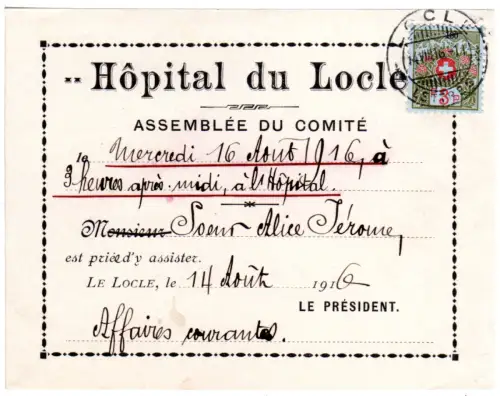 LOCLE
-- Hôpital du Locle
3
ASSEMBLÉE DU COMITÉ
le Mercredi 16 Août 1916, à
3 heures après-midi, à l'Hôpital.
Monsieur Soeur Alice Jérome,
est priée d'y assister.
LE LOCLE, le 14 Août 1916
LE PRÉSIDENT.
Affaires courantes.